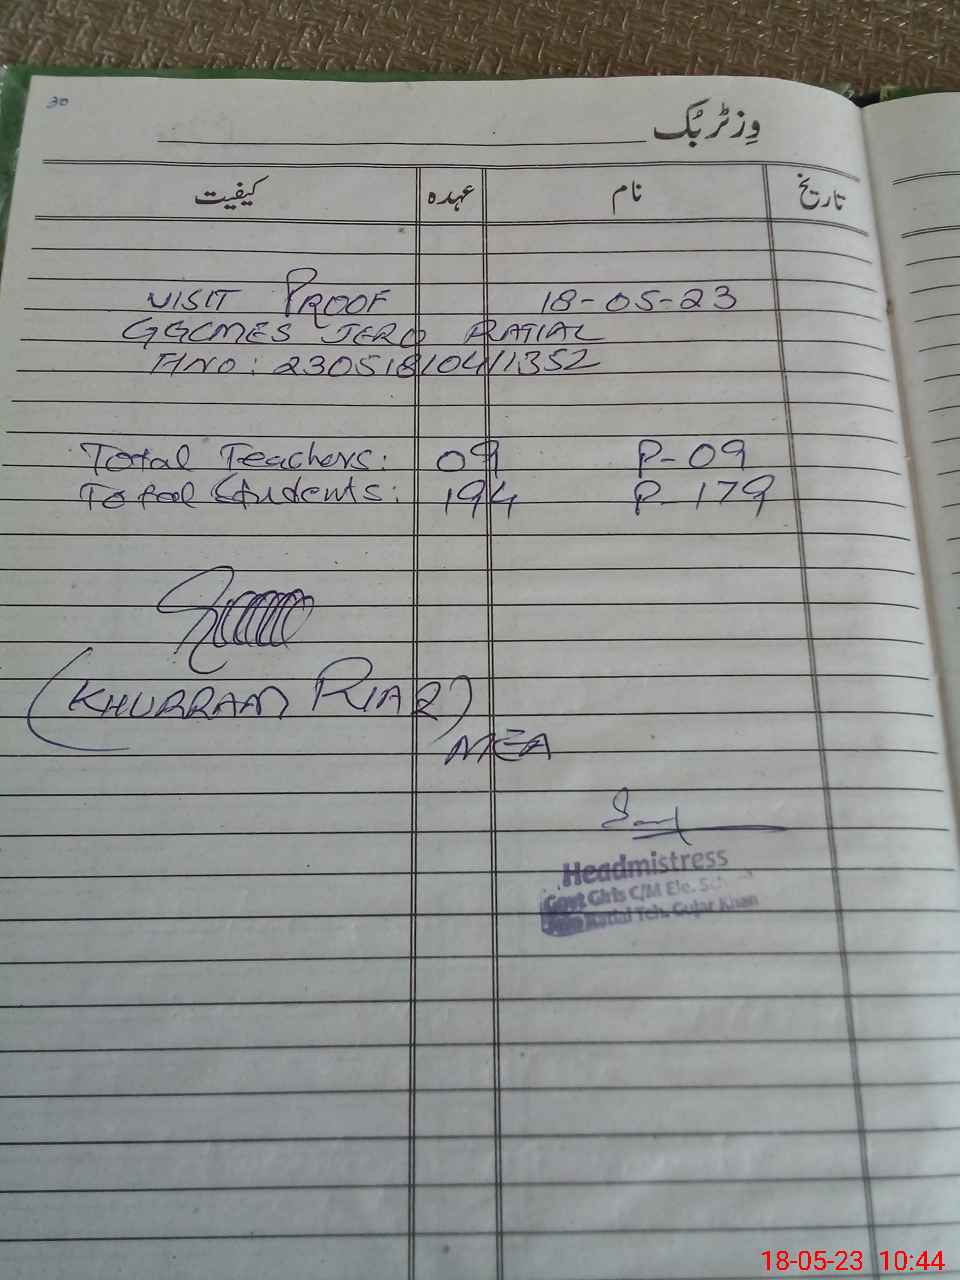 30
وزٹر بُک
تاریخ نام عہدہ کیفیت
VISIT PROOF 18-05-23
GGCMES JERO RATIAL
FINO: 23051810411352
Total Teachers: 09 P-09
Total Students: 194 P-179
(KHURRAM RIAZ)
MEA
Headmistress
Govt Girls C/M Ele. School
Ratial Teh. Gujar Khan
18-05-23 10:44